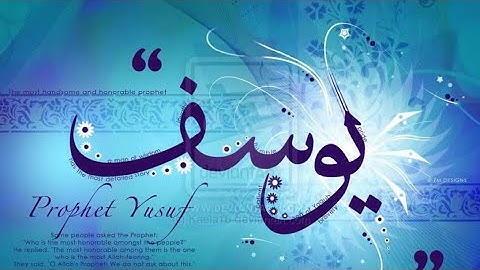 The most handsome and honorable prophet
“
يوسف
”
a man of wisdom
has the most detailed story
© ZM DESIGNS
Prophet Yusuf
Some people asked the Prophet:
"Who is the most honorable amongst the people?"
He replied, "The most honorable among them is the one
who is the most Allah-fearing."
They said, "O Allah's Prophet! We do not ask about this."